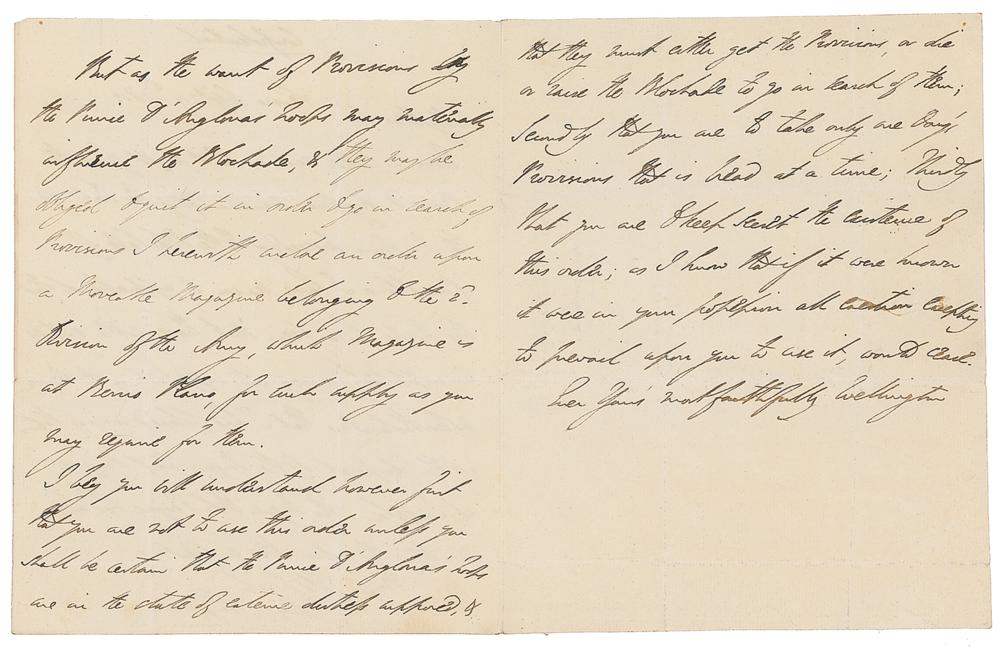 But as the want of Provisions by
the Prince D'Anglona's troops may materially
influence the Blockade, & they may be
obliged to quit it in order to go in search of
Provisions I herewith inclose an order upon
a Moveable Magazine belonging to the 2.
Division of the Army, which Magazine is
at Plano, for such supply as you
may require for them.
I beg you will understand however first
that you are not to use this order unless you
shall be certain that the Prince D'Anglona's troops
are in the state of extreme distress supposed, &
that they must either get the Provisions, or die
or raise the Blockade to go in search of them;
Secondly that you are to take only one Day's
Provisions that is bread at a time; Thirdly
that you are to keep secret the existence of
this order; as I know that if it were known
it were in your possession all exertion excepting
to prevail upon you to use it, would cease.
Ever Yours most faithfully Wellington